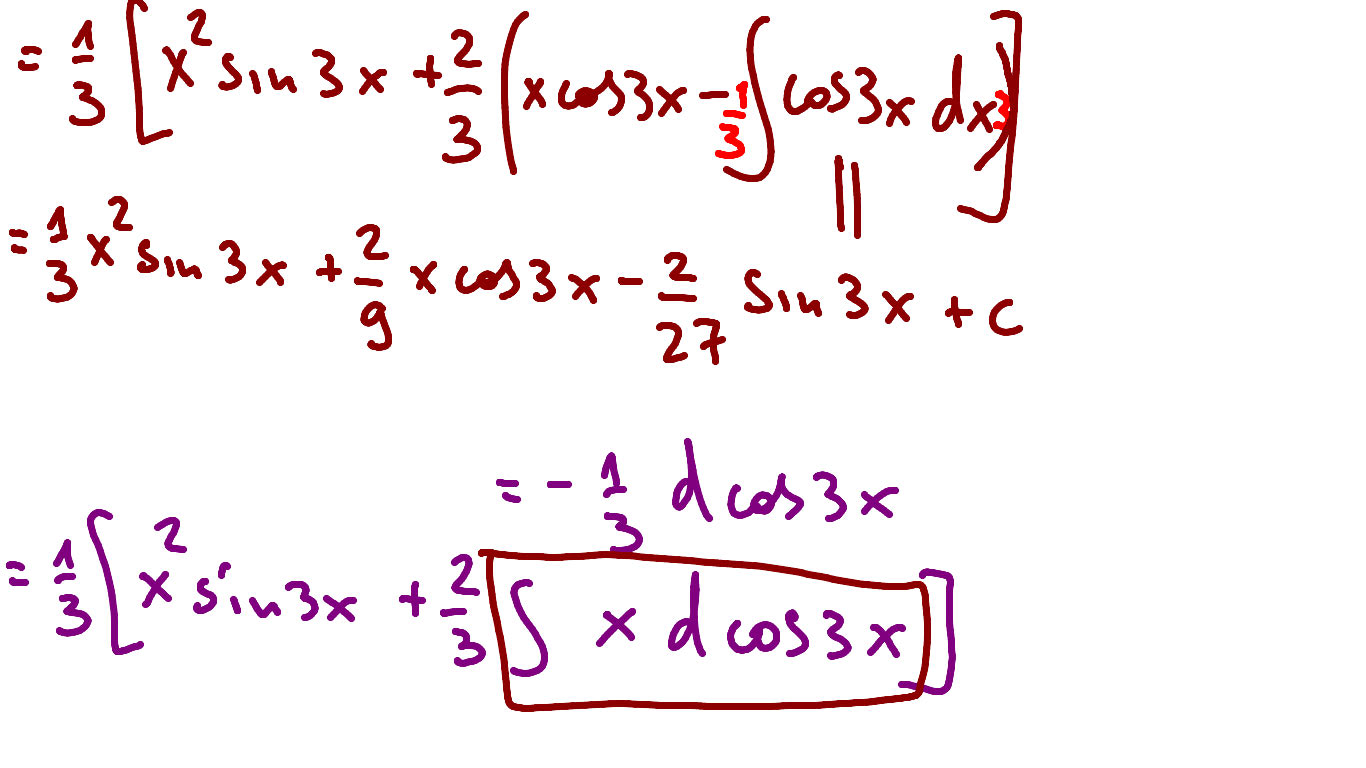 = 1/3 [x² sin 3x + 2/3 (x cos 3x - 1/3 ∫ cos 3x dx3)]
||
= 1/3 x² sin 3x + 2/9 x cos 3x - 2/27 sin 3x + c
= - 1/3 d cos 3x
= 1/3 [x² sin 3x + 2/3 ∫ x d cos 3x]